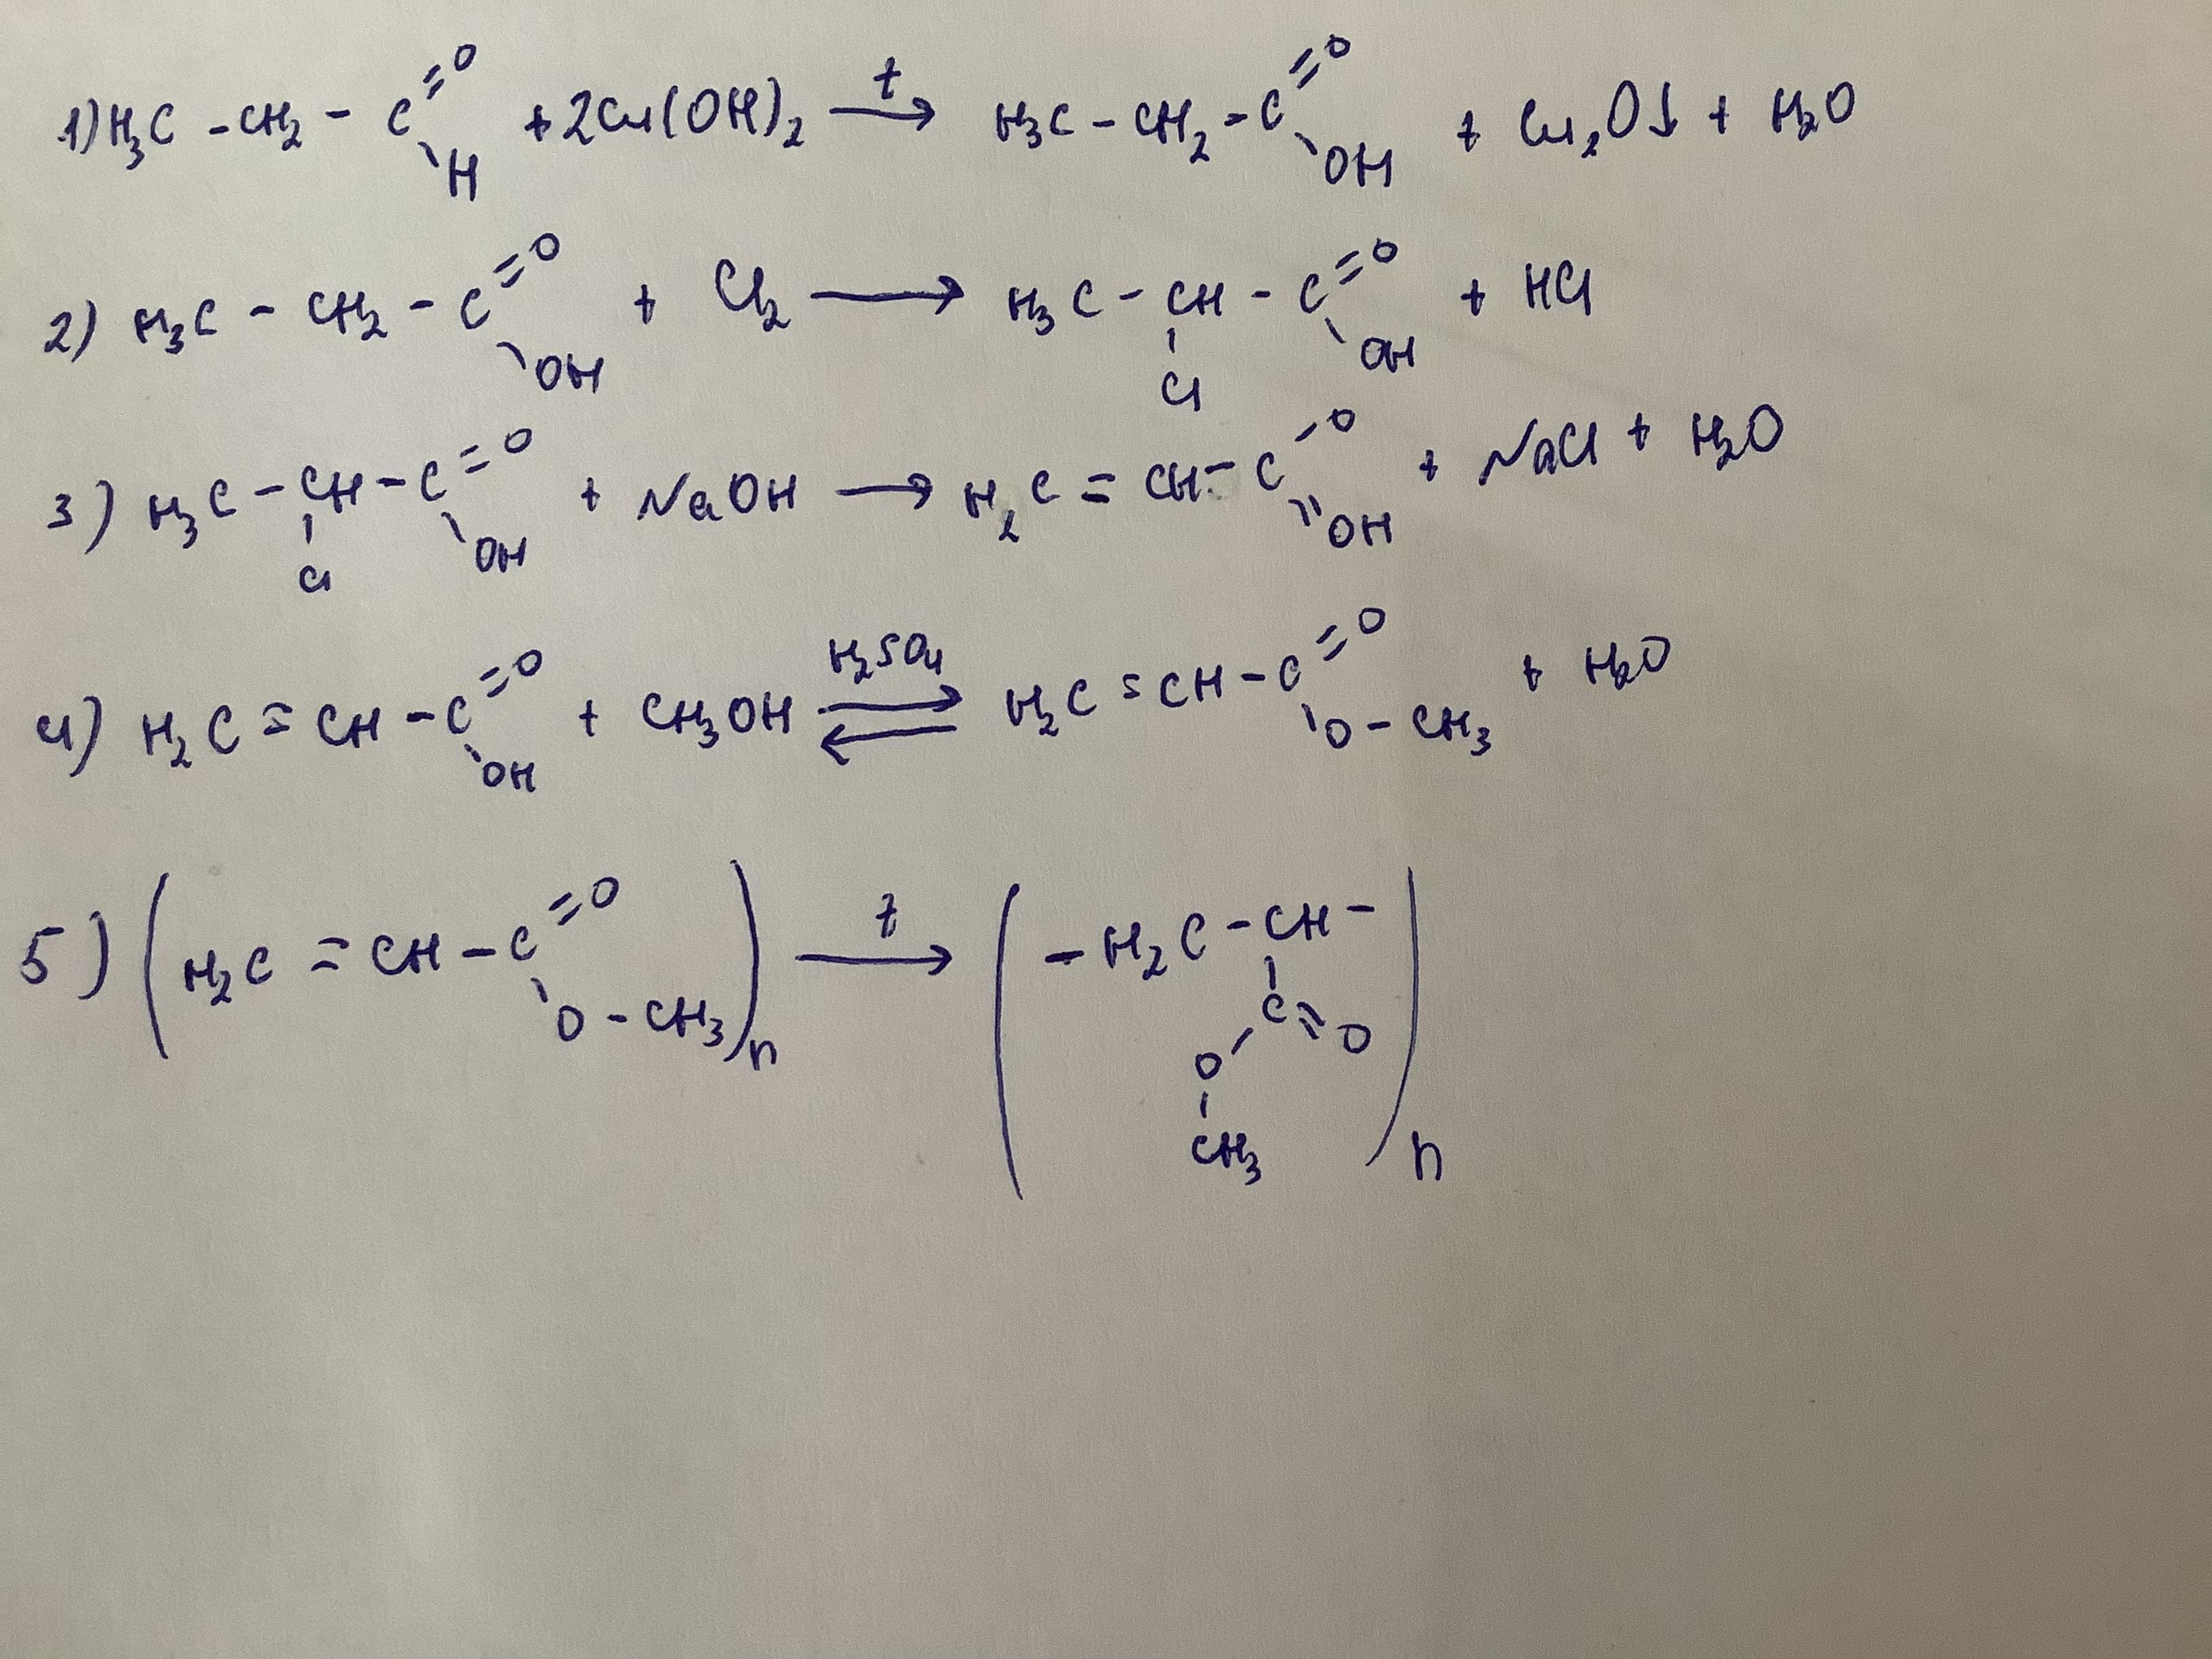 1) H₃C - CH₂ - C (=O) (-H) + 2Cu(OH)₂ →(t) H₃C - CH₂ - C (=O) (-OH) + Cu₂O↓ + H₂O
2) H₃C - CH₂ - C (=O) (-OH) + Cl₂ → H₃C - CH (-Cl) - C (=O) (-OH) + HCl
3) H₃C - CH (-Cl) - C (=O) (-OH) + NaOH → H₂C = CH - C (-O) (=OH) + NaCl + H₂O
4) H₂C = CH - C (=O) (-OH) + CH₃OH ⇄(H₂SO₄) H₂C = CH - C (=O) (-O - CH₃) + H₂O
5) (H₂C = CH - C (=O) (-O - CH₃))n →(t) (- H₂C - CH (-C (=O) (-O - CH₃)) -)n